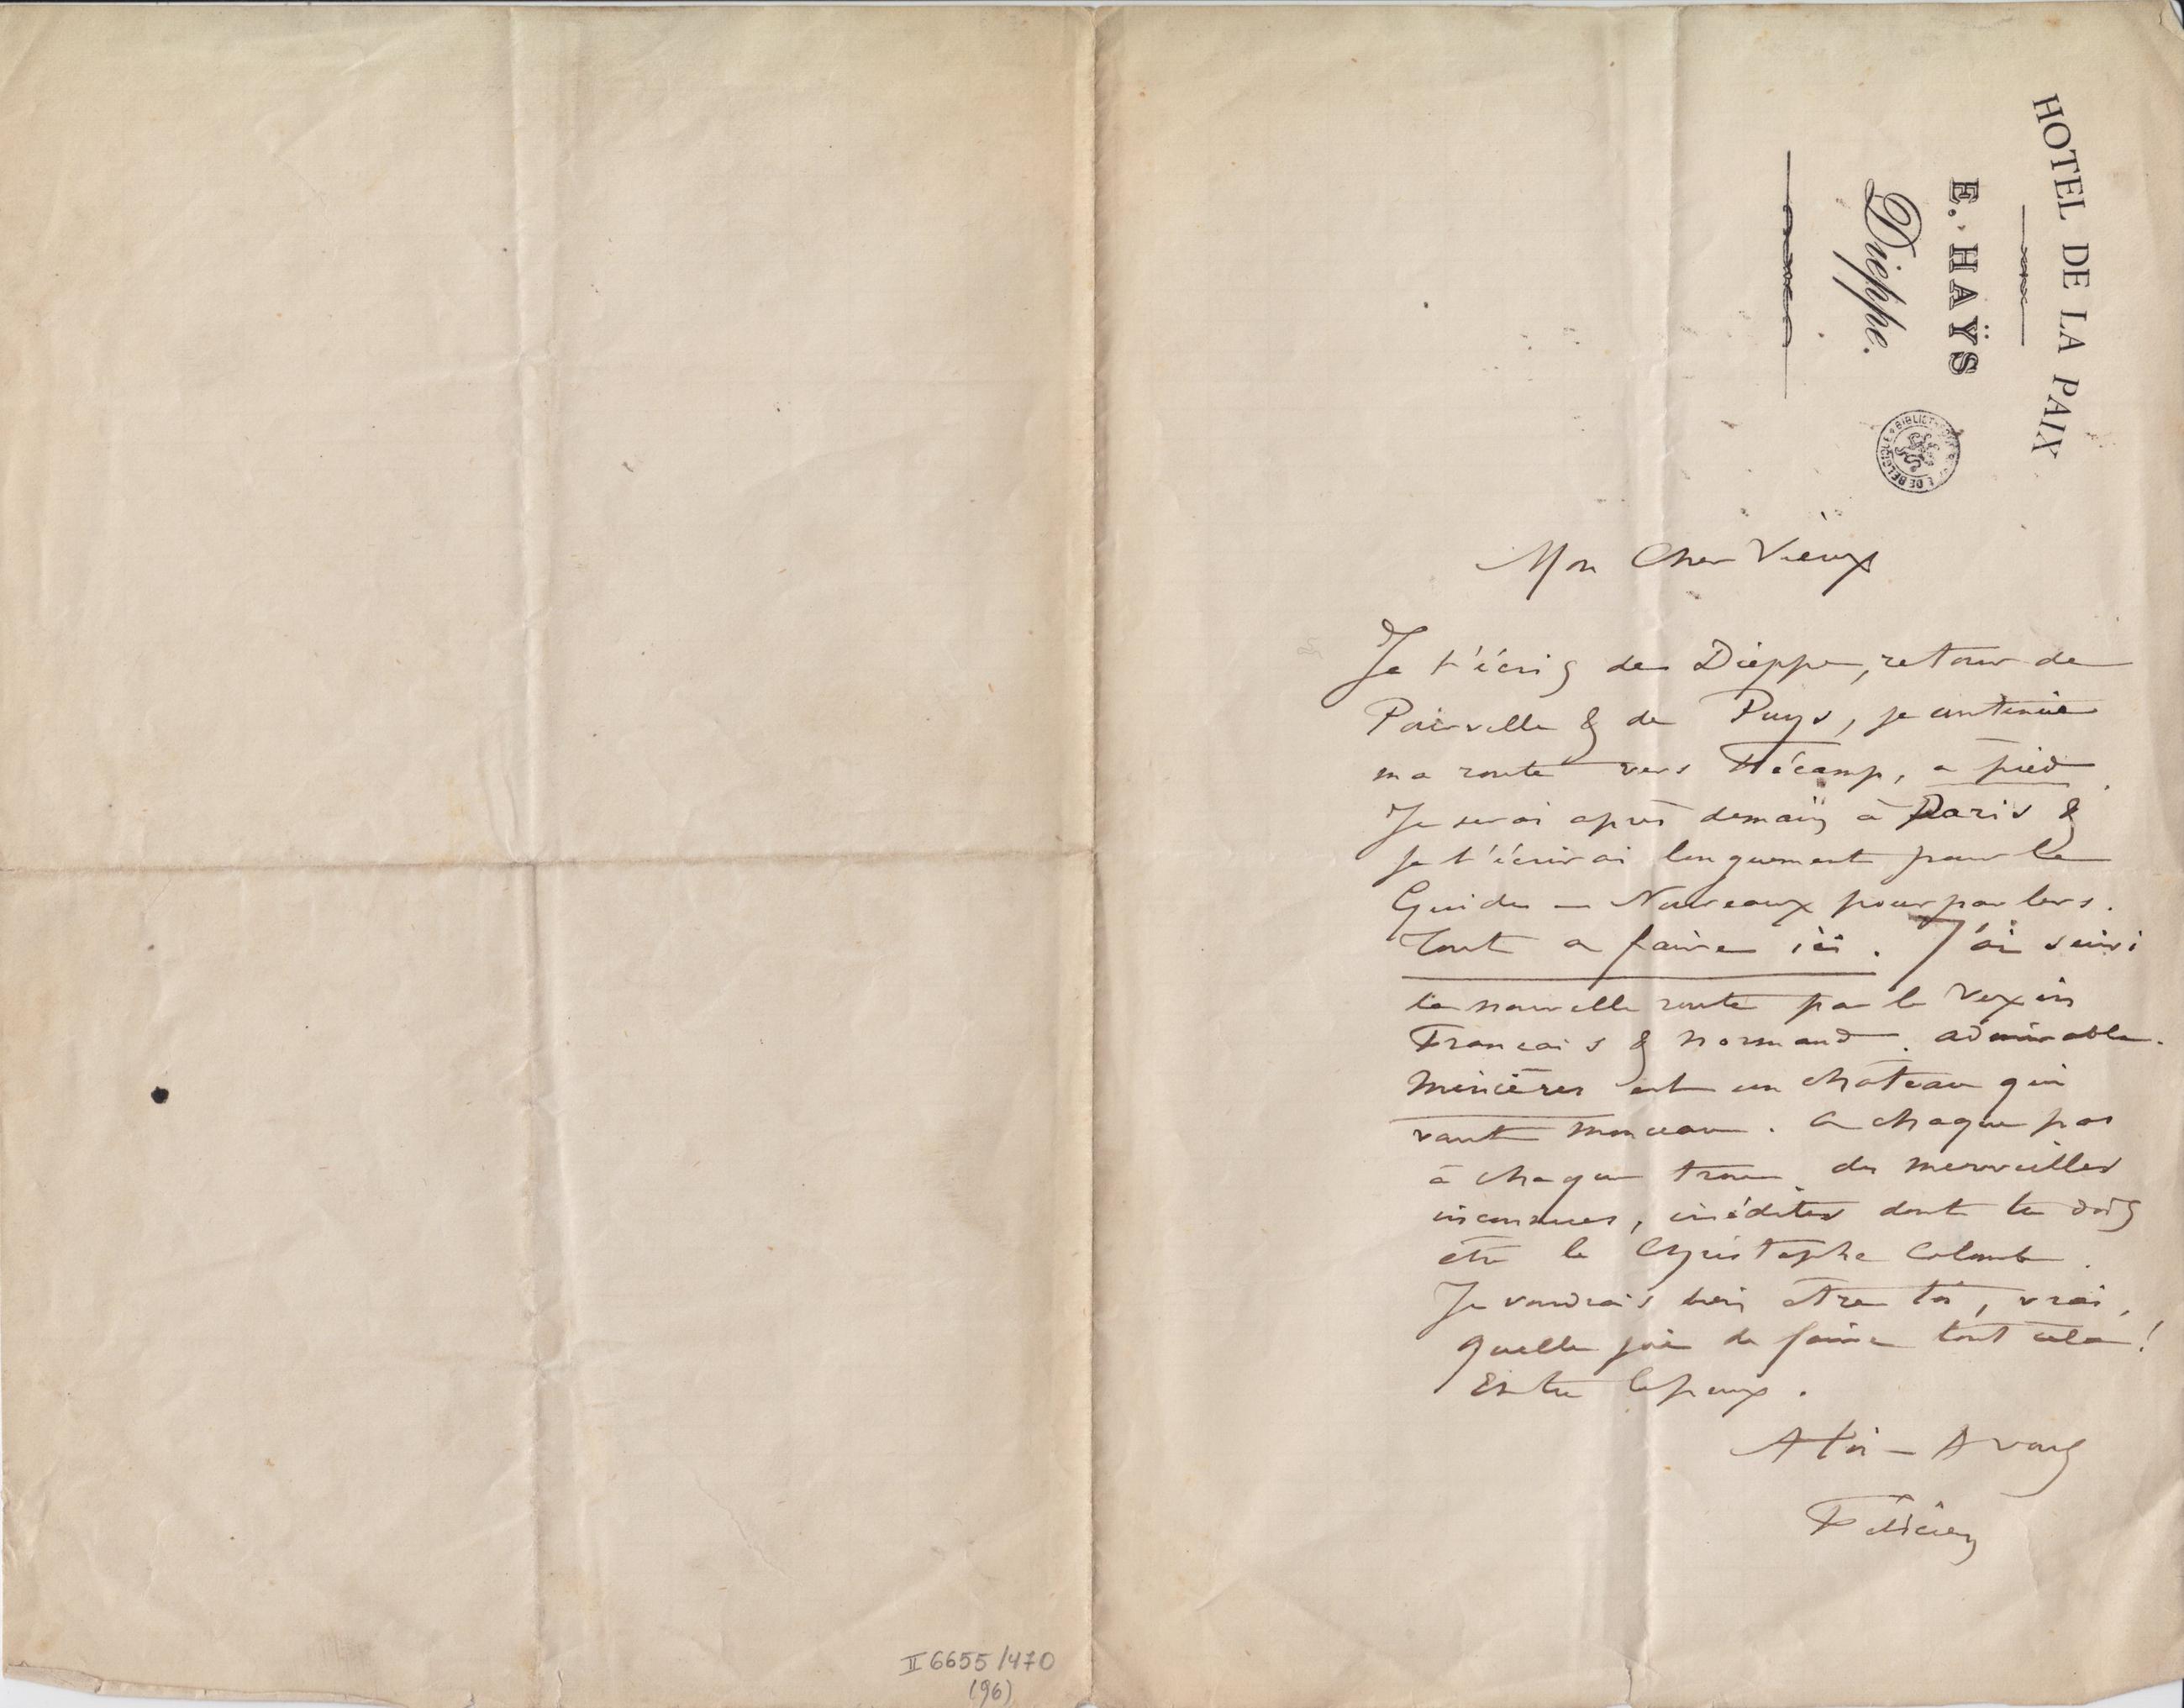 HOTEL DE LA PAIX
E. HAŸS
Dieppe.
Mon Cher Vieux
Je t'écris de Dieppe, retour de
Pourville & de Puys, je continue
ma route vers Fécamp, a pied.
Je serai après demain à Paris &
je t'écrirai longuement pour le
Guide – Nouveaux pourparlers.
Tout a faire ici. J'ai suivi
la nouvelle route par le Vexin
Francais & Normand. admirable.
est un chateau qui
vaut . A chaque pas
à chaque trou des merveilles
inconnues, inédites dont tu dois
être le Christophe Colomb.
Je voudrais bien être toi, vrai,
quelle joie de faire tout cela!
Es tu
A toi – A vous
Félicien
II 6655/470
(96)